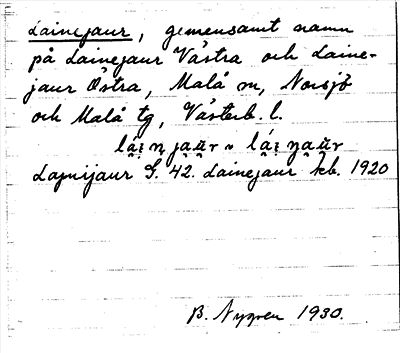 Lainejaur, gemensamt namn
på Lainejaur Västra och Laine-
jaur Östra, Malå sn, Norsjö
och Malå tg, Västerb. l.
Lapnijaur S. 42. Lainejaur kb. 1920
B. Nygren 1930.